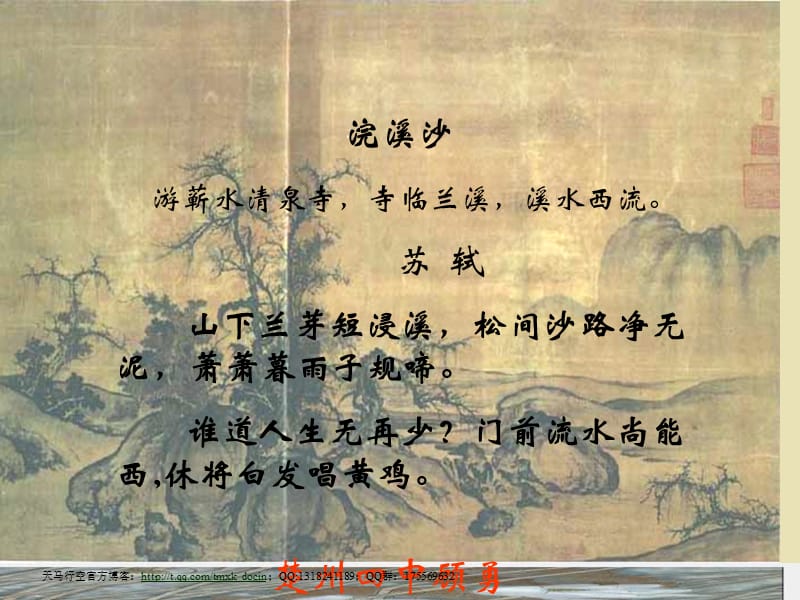 浣溪沙
游蕲水清泉寺，寺临兰溪，溪水西流。
苏 轼
山下兰芽短浸溪，松间沙路净无
泥，萧萧暮雨子规啼。
谁道人生无再少？门前流水尚能
西,休将白发唱黄鸡。
天马行空官方博客：http://t.qq.com/tmxk_docin；QQ:1318241189；QQ群：175569632
楚州四中顾勇